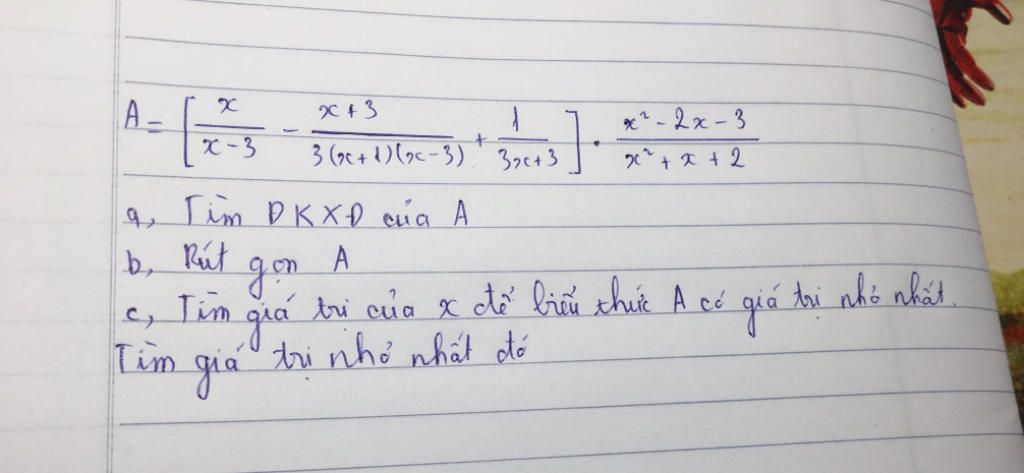 A = [ x/(x-3) - (x+3)/(3(x+1)(x-3)) + 1/(3x+3) ] . (x²-2x-3)/(x²+x+2)
a, Tìm ĐKXĐ của A
b, Rút gọn A
c, Tìm giá trị của x để biểu thức A có giá trị nhỏ nhất.
Tìm giá trị nhỏ nhất đó